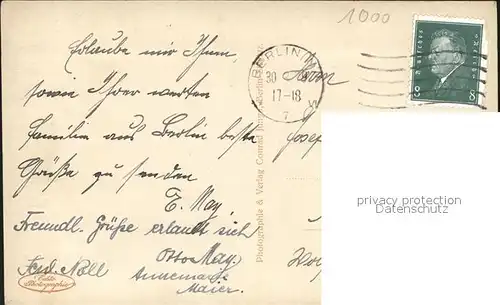 1000
Erlaube mir Ihnen,
sowie Ihrer werten
Familie aus Berlin beste
Grüße zu senden
E. May
Freundl. Grüße erlaubt sich
Otto May.
Ferd. Noll
Annemarie
Maier.
Echte
Photographie
Photographie & Verlag Conrad Junga, Berlin
BERLIN
30
17-18
7
Herrn
Josef
8
privacy protection
Datenschutz